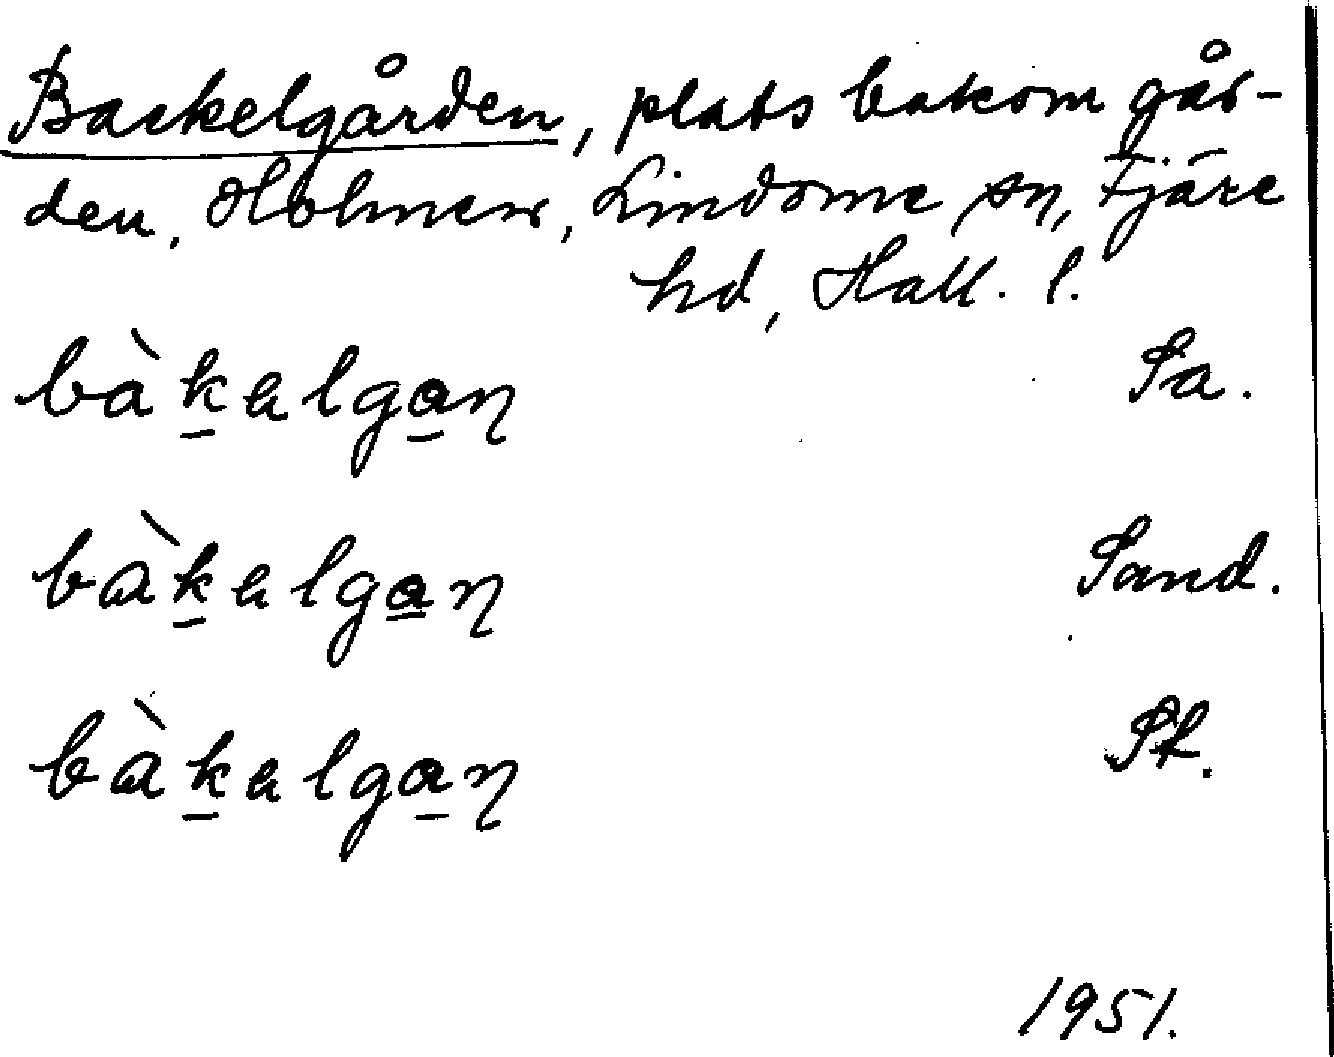 Backelgården, plats bakom går-
den, Holmen, Lindome sn, Fjäre
hd, Hall. l.
bàk̲ɐlga̲ɳ Sa.
bàk̲ɐlga̳ɳ Sand.
bàk̲ɐlga̲ɳ St.
1951.